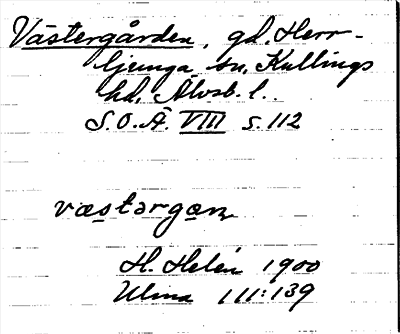 Västergården, gd. Herr-
ljunga sn, Kullings
hd, Älvsb. l.
S.O.Ä. VIII s. 112
væstərgɑn
H. Helén 1900
Ulma 111:139